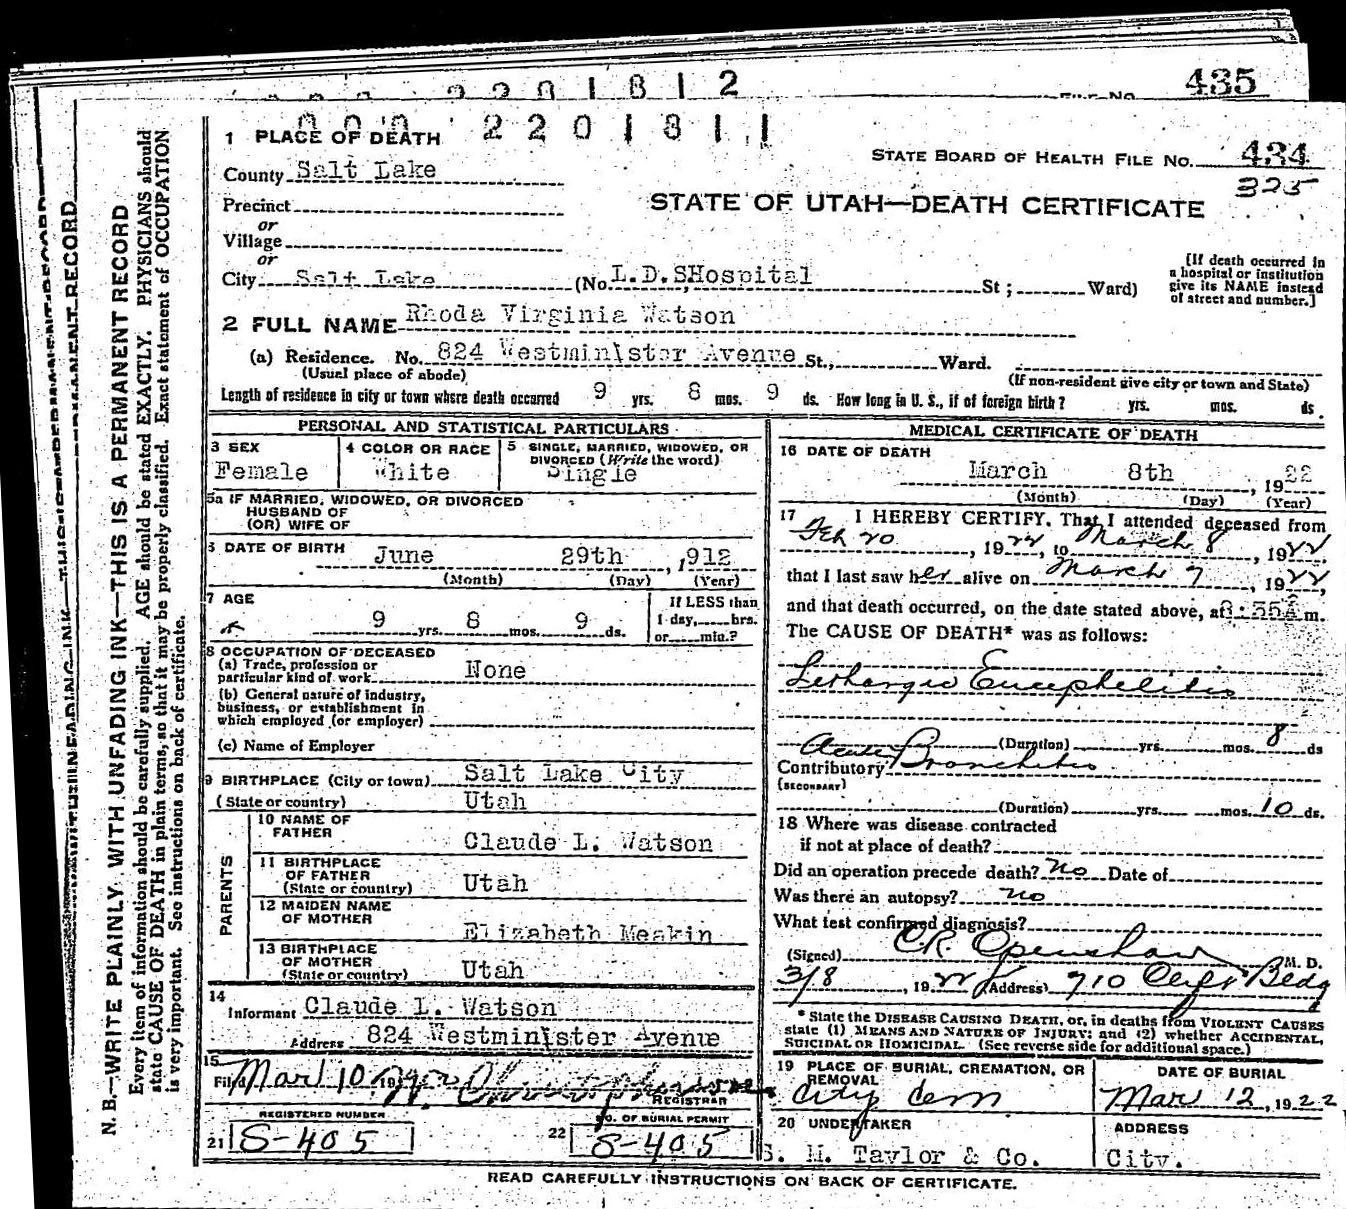 2201812
FILE No. 435
000 2201811
1 PLACE OF DEATH
STATE BOARD OF HEALTH FILE No. 434
325
County Salt Lake
STATE OF UTAH—DEATH CERTIFICATE
Precinct
or
Village
or
City Salt Lake (No. L.D.SHospital St; Ward)
[If death occurred in
a hospital or institution
give its NAME instead
of street and number.]
2 FULL NAME Rhoda Virginia Watson
(a) Residence. No. 824 Westminister Avenue St., Ward.
(Usual place of abode) (If non-resident give city or town and State)
Length of residence in city or town where death occurred 9 yrs. 8 mos. 9 ds. How long in U. S., if of foreign birth? yrs. mos. ds.
PERSONAL AND STATISTICAL PARTICULARS
3 SEX
Female
4 COLOR OR RACE
White
5 SINGLE, MARRIED, WIDOWED, OR
DIVORCED (Write the word)
Single
5a IF MARRIED, WIDOWED, OR DIVORCED
HUSBAND OF
(OR) WIFE OF
6 DATE OF BIRTH June 29th, 1912
(Month) (Day) (Year)
7 AGE
9 yrs. 8 mos. 9 ds.
If LESS than
1 day, hrs.
or min.?
8 OCCUPATION OF DECEASED
(a) Trade, profession or
particular kind of work None
(b) General nature of industry,
business, or establishment in
which employed (or employer)
(c) Name of Employer
9 BIRTHPLACE (City or town) Salt Lake City
(State or country) Utah
PARENTS
10 NAME OF
FATHER Claude L. Watson
11 BIRTHPLACE
OF FATHER
(State or country) Utah
12 MAIDEN NAME
OF MOTHER Elizabeth Meakin
13 BIRTHPLACE
OF MOTHER
(State or country) Utah
14
Informant Claude L. Watson
Address 824 Westminister Avenue
15
Filed Mar 10 19
REGISTRAR
REGISTERED NUMBER
21 S-405
NO. OF BURIAL PERMIT
22 S-405
MEDICAL CERTIFICATE OF DEATH
16 DATE OF DEATH
March 8th, 1922
(Month) (Day) (Year)
17 I HEREBY CERTIFY, That I attended deceased from
Feb 20, 1922, to March 8, 1922
that I last saw her alive on March 7, 1922,
and that death occurred, on the date stated above, at 8:35A m.
The CAUSE OF DEATH* was as follows:
Lethargic Encephelitis
(Duration) yrs. mos. 8 ds
Contributory Acute Bronchitis
(SECONDARY)
(Duration) yrs. mos. 10 ds.
18 Where was disease contracted
if not at place of death?
Did an operation precede death? No Date of
Was there an autopsy? no
What test confirmed diagnosis?
(Signed) C.R. Openshaw M. D.
3/8, 1922 (Address) 710 Clift Bldg
* State the DISEASE CAUSING DEATH, or, in deaths from VIOLENT CAUSES
state (1) MEANS AND NATURE OF INJURY; and (2) whether ACCIDENTAL,
SUICIDAL OR HOMICIDAL. (See reverse side for additional space.)
19 PLACE OF BURIAL, CREMATION, OR
REMOVAL
City Cem
DATE OF BURIAL
Mar 12, 1922
20 UNDERTAKER
S. M. Taylor & Co.
ADDRESS
City.
READ CAREFULLY INSTRUCTIONS ON BACK OF CERTIFICATE.
N. B.—WRITE PLAINLY WITH UNFADING INK—THIS IS A PERMANENT RECORD
Every item of information should be carefully supplied. AGE should be stated EXACTLY. PHYSICIANS should
state CAUSE OF DEATH in plain terms, so that it may be properly classified. Exact statement of OCCUPATION
is very important. See instructions on back of certificate.